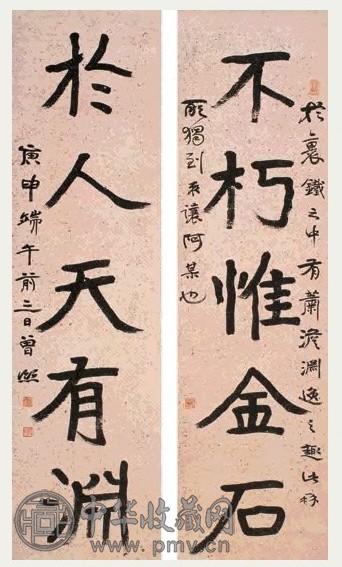 不朽惟金石
於裹鐵之中有蕭澹淵逸之趣此
獨到 讓阿某也
於人天有淵
庚申端午前三日曾熙
中华收藏网
www.pmv.cn